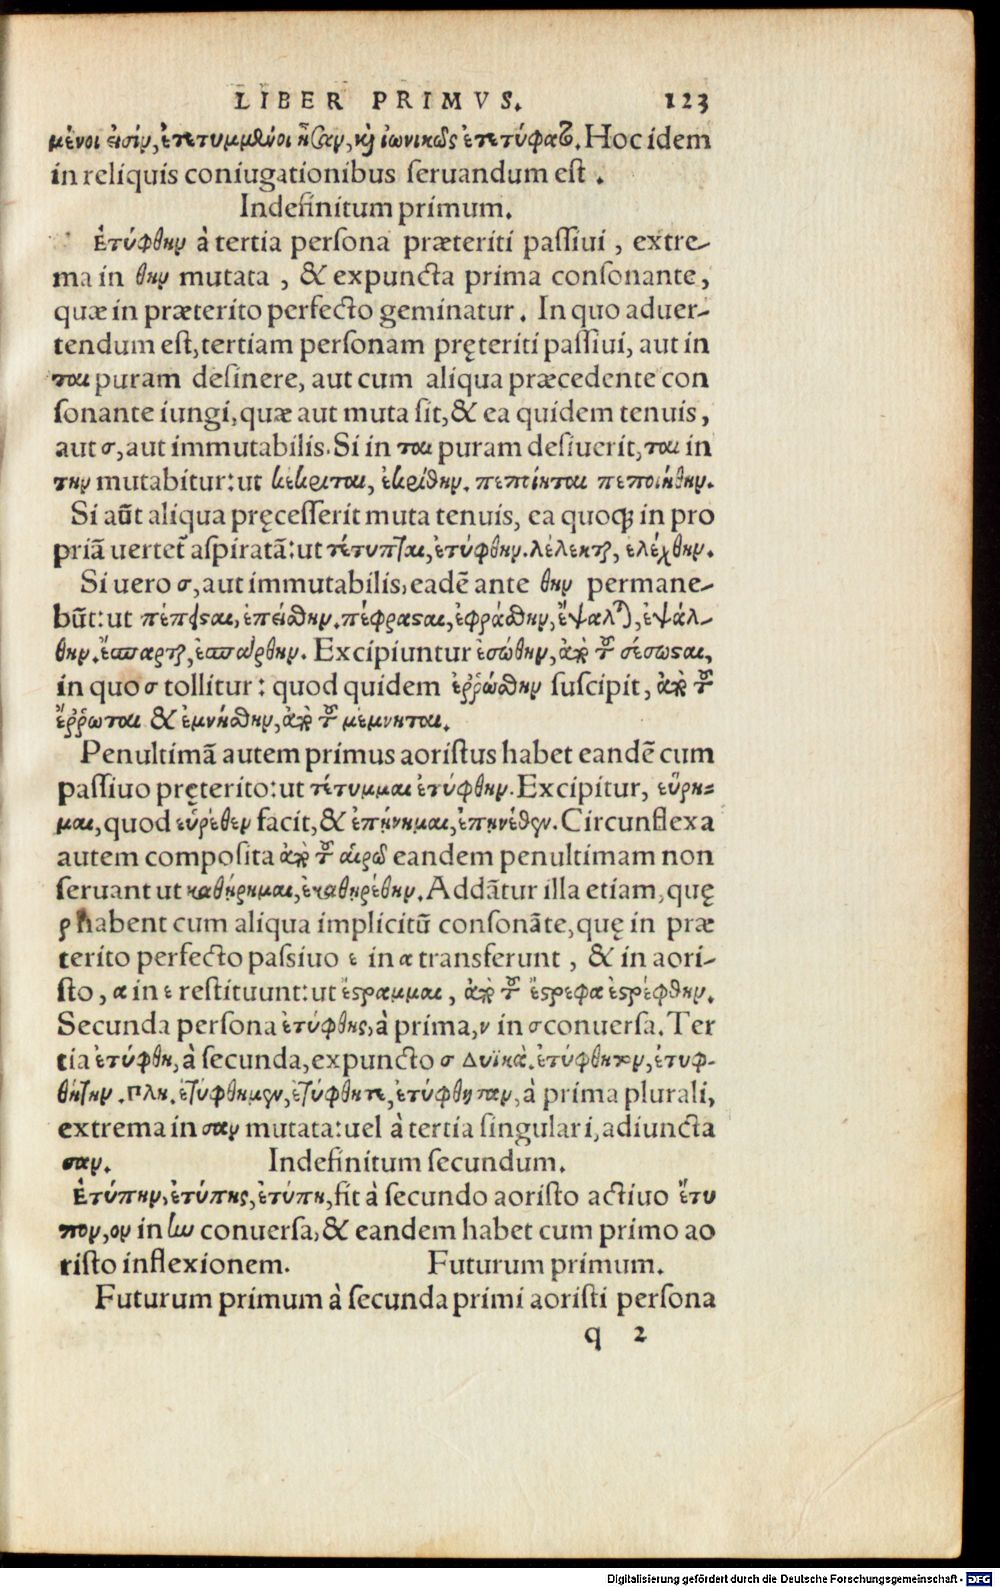 LIBER PRIMVS. 123
μένοι εἰσίν, ἐτετυμμένοι ἦσαν, καὶ ἰωνικῶς ἐτετύφατο. Hoc idem
in reliquis coniugationibus seruandum est .
Indefinitum primum.
Ἐτύφθην à tertia persona præteriti passiui , extre-
ma in θην mutata , & expuncta prima consonante,
quæ in præterito perfecto geminatur. In quo aduer-
tendum est, tertiam personam pręteriti passiui, aut in
ται puram desinere, aut cum aliqua præcedente con
sonante iungi, quæ aut muta sit, & ea quidem tenuis,
aut σ, aut immutabilis. Si in ται puram desiuerit, ται in
την mutabitur: ut κέκριται, ἐκρίθην. πεποίηται πεποιήθην.
Si aūt aliqua pręcesserit muta tenuis, ea quoq; in pro
priā uertet̄ aspiratā: ut τέτυπται, ἐτύφθην. λέλεκται, ελέχθην.
Si uero σ, aut immutabilis, eadē ante θην permane-
būt: ut πέπεισαι, ἐπείσθην. πέφρασαι, ἐφράσθην, ἔψαλται, ἐψάλ-
θην. ἔσπαρται, ἐσπάρθην. Excipiuntur ἐσώθην, ἀπὸ τοῦ σέσωσαι,
in quo σ tollitur: quod quidem ἐῤῥώσθην suscipit, ἀπὸ τοῦ
ἔῤῥωται & ἐμνήσθην, ἀπὸ τοῦ μέμνηται.
Penultimā autem primus aoristus habet eandē cum
passiuo pręterito: ut τέτυμμαι ἐτύφθην. Excipitur, εὕρη=
μαι, quod εὑρέθην facit, & ἐπῄνημαι, ἐπῃνέθην. Circunflexa
autem composita ἀπὸ τοῦ αἱρῶ eandem penultimam non
seruant ut καθῄρημαι, ἐκαθῃρέθην. Addātur illa etiam, quę
ρ habent cum aliqua implicitū consonāte, quę in præ
terito perfecto passiuo ε in α transferunt , & in aori-
sto, α in ε restituunt: ut ἔστραμμαι , ἀπὸ τοῦ ἔστρεφα ἐστρέφθην.
Secunda persona ἐτύφθης, à prima, ν in σ conuersa. Ter
tia ἐτύφθη, à secunda, expuncto σ Δυϊκὰ. ἐτύφθητον, ἐτυφ-
θήτην. Πλη. ἐτύφθημεν, ἐτύφθητε, ἐτύφθησαν, à prima plurali,
extrema in σαν mutata: uel à tertia singulari, adiuncta
σαν. Indefinitum secundum.
Ἐτύπην, ἐτύπης, ἐτύπη, fit à secundo aoristo actiuo ἔτυ
πον, ον in ην conuersa, & eandem habet cum primo ao
risto inflexionem. Futurum primum.
Futurum primum à secunda primi aoristi persona
q 2
Digitalisierung gefördert durch die Deutsche Forschungsgemeinschaft - DFG